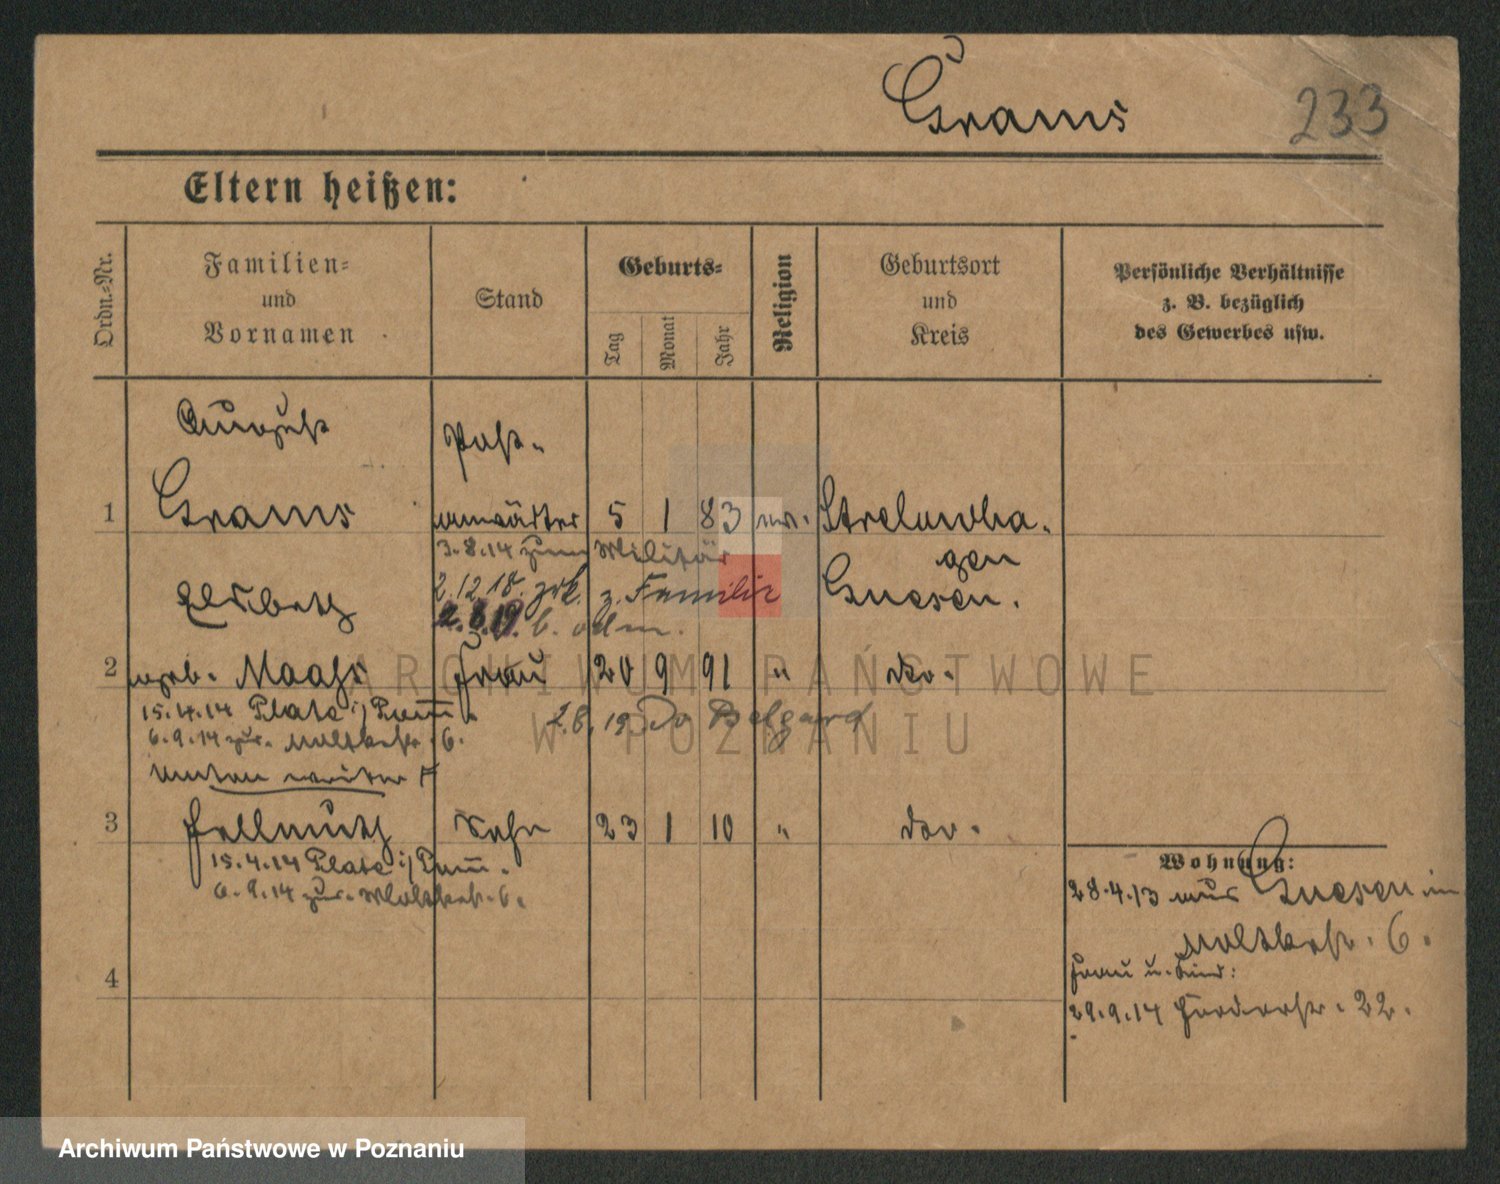 Grams
233
Eltern heißen:
Ordn.-Nr.
Familien-
und
Vornamen
Stand
Geburts-
Tag
Monat
Jahr
Religion
Geburtsort
und
Kreis
Persönliche Verhältnisse
z. B. bezüglich
des Gewerbes usw.
August
Post-
1 Grams anwärter 5 1 83 ev. Strelowha-
gen
3.8.14 zum Militär
2.12.18. zrk. z. Familie
Gnesen.
Elsbeth
2.8.19.
2 geb. Maahs Frau 20 9 91 " do.
15.4.14 Plate i/Pom.
2.8.19 Do Belgard
6.9.14 zur. Moltkestr. 6.
unten weiter F
3 Hellmuth Sohn 23 1 10 " do.
15.4.14 Plate i/Pom.
6.9.14 zur. Moltkestr. 6.
4
Wohnung:
28.4.13 aus Gnesen in
Moltkestr. 6.
Frau u. Kind:
29.9.14 22.
ARCHIWUM PAŃSTWOWE
W POZNANIU
Archiwum Państwowe w Poznaniu